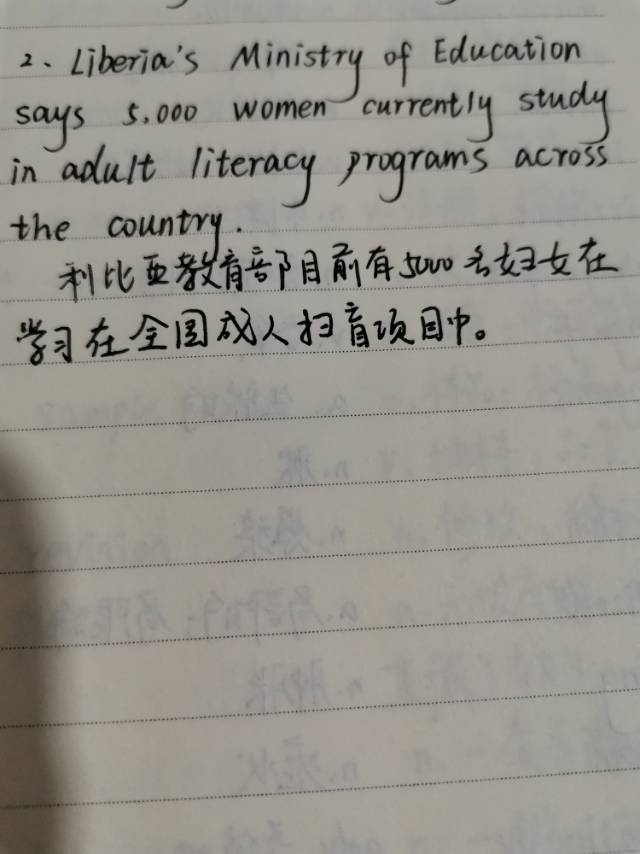 2、Liberia's Ministry of Education
says 5,000 women currently study
in adult literacy programs across
the country.
利比亚教育部目前有5000名妇女在
学习在全国成人扫盲项目中。